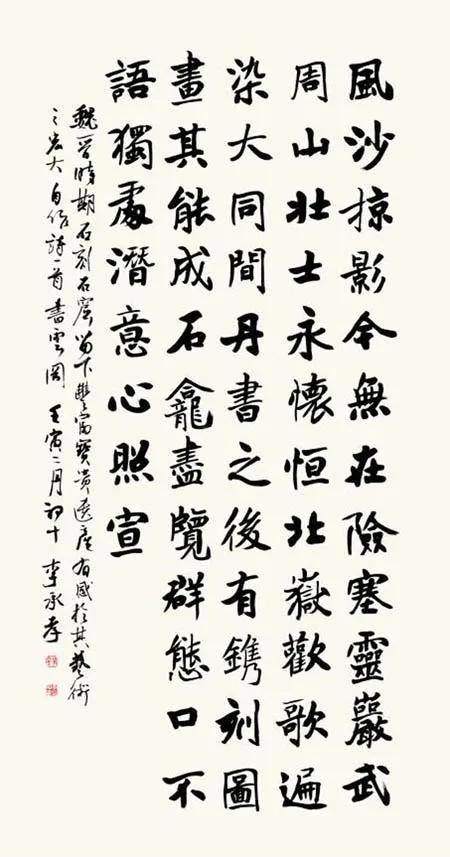 風沙掠影今無在險塞靈巖武
周山壯士永懷恒北嶽歡歌遍
染大同間丹書之後有鐫刻圖
畫其能成石龕盡覽群態口不
語獨處潛意心照宣
魏晋時期石刻石窟留下豐富寶貴遺産有感於其藝術
之宏大自作詩一首書雲岡 壬寅二月初十 李承孝